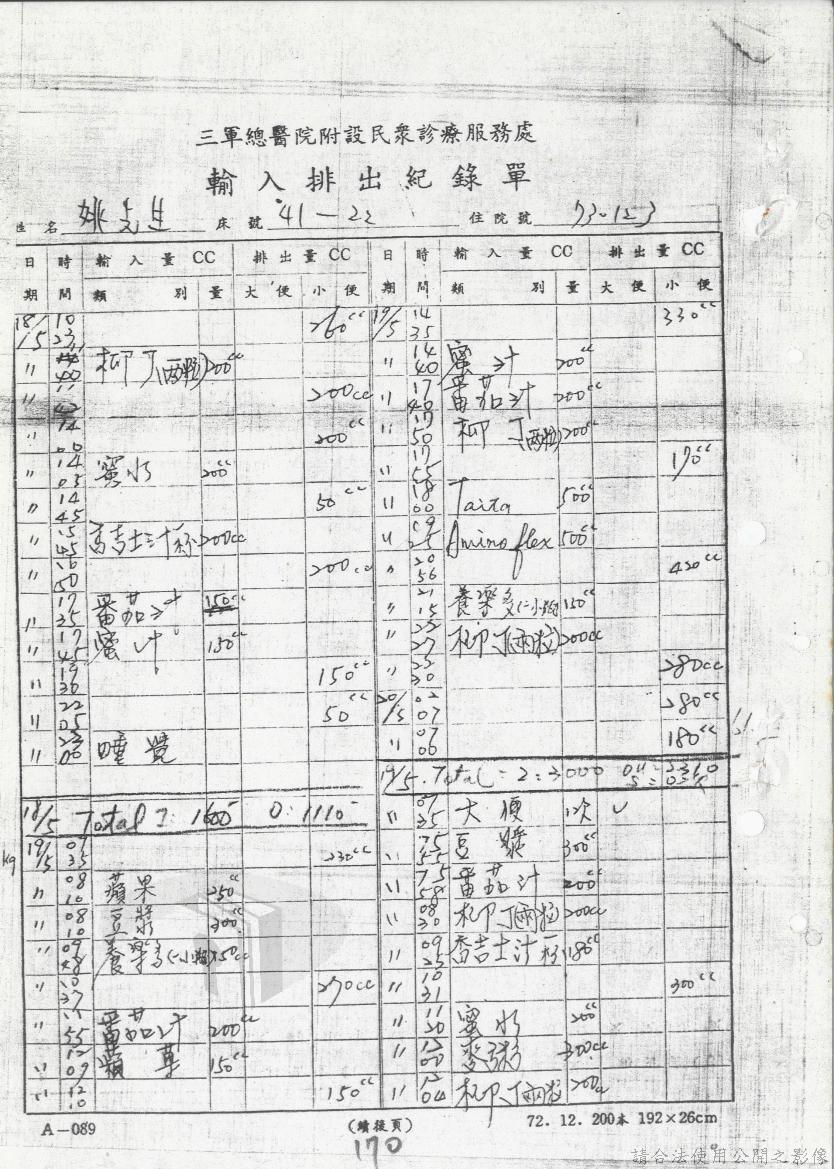 三軍總醫院附設民衆診療服務處
輸入排出紀錄單
姓名 姚先生 床號 41-22 住院號 73-123
日期 時間 輸入量CC 類別 量 排出量CC 大便 小便
18/5 10 260cc
〃 40 柳丁(兩顆) 200cc
〃 200cc
〃 14 00 200cc
〃 14 05 蜜水 200cc
〃 14 45 50cc
〃 15 45 200cc
〃 16 50 200cc
〃 17 35 番茄汁 150cc
〃 17 45 蜜汁 150cc
〃 19 30 150cc
〃 22 05 50cc
〃 睡覺
18/5 Total I: 1600 O: 1110
kg
19/5 07 35 230cc
〃 08 10 蘋果 250cc
〃 08 10 豆漿 300cc
〃 09 48 養樂多(二小瓶) 150cc
〃 10 37 270cc
〃 11 55 番茄汁 200cc
〃 12 09 150cc
〃 12 10 150cc
日期 時間 輸入量CC 類別 量 排出量CC 大便 小便
19/5 14 35 330cc
〃 14 40 蜜汁 200cc
〃 17 40 番茄汁 200cc
〃 17 50 柳丁(兩顆) 200cc
〃 17 55 170cc
〃 18 00 Taita 500cc
〃 19 25 Amino flex 500cc
〃 20 56 420cc
〃 21 15 養樂多(二小瓶) 150cc
〃 22 27 柳丁兩粒 200cc
〃 22 30 280cc
20/5 02 07 280cc
〃 07 06 180cc
19/5. Total = I: 3000
〃 07 35 大便 1次 ✓
〃 豆漿 300cc
〃 番茄汁 200cc
〃 08 30 柳丁兩粒 200cc
〃 09 25 180cc
〃 10 31 300cc
〃 11 20 蜜水 200cc
〃 12 00 300cc
〃 12 04 柳丁兩粒 200cc
A-089
(續後頁)
72.12.200本 192×26cm
170
請合法使用公開之影像